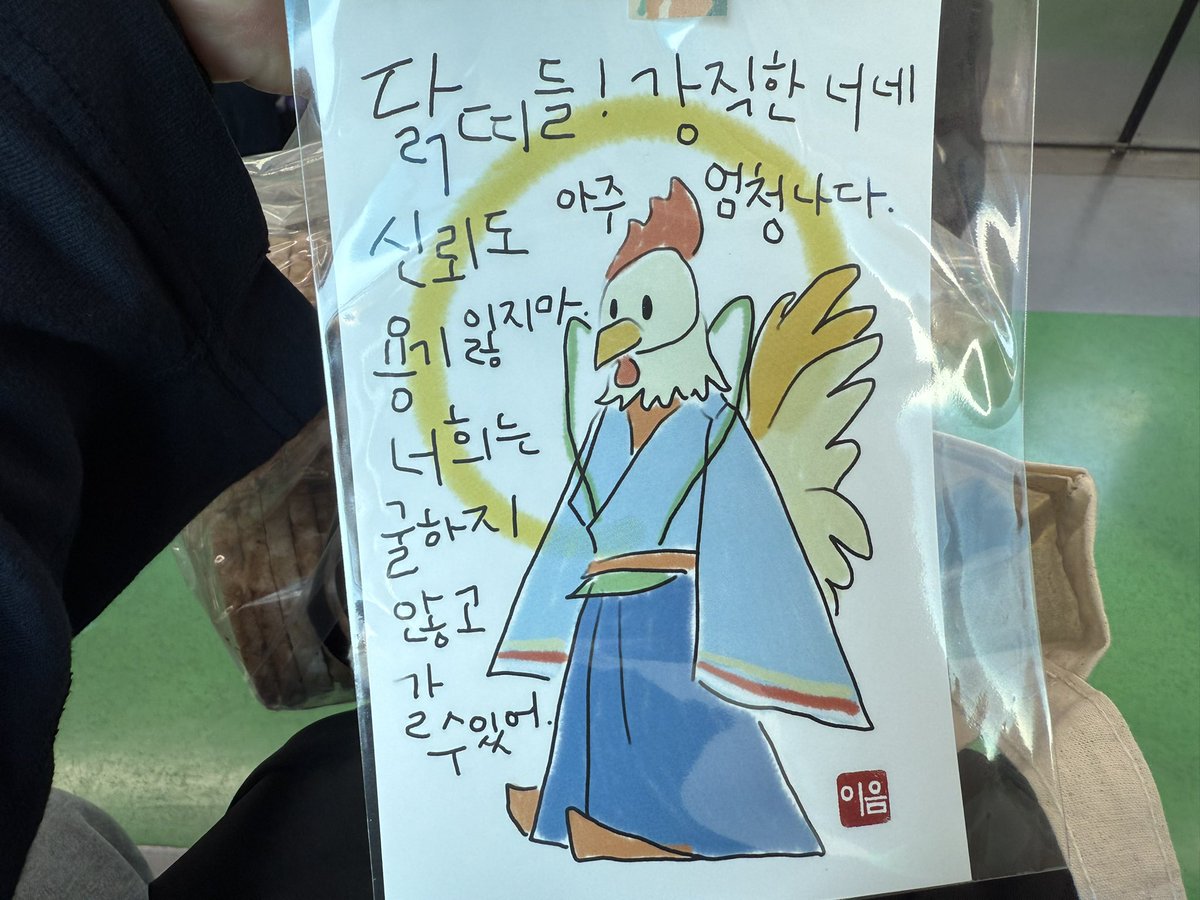 닭띠들! 강직한 너네
신뢰도 아주 엄청나다.
용기 잃지마.
너희는
굴하지
않고
갈 수 있어.
이음